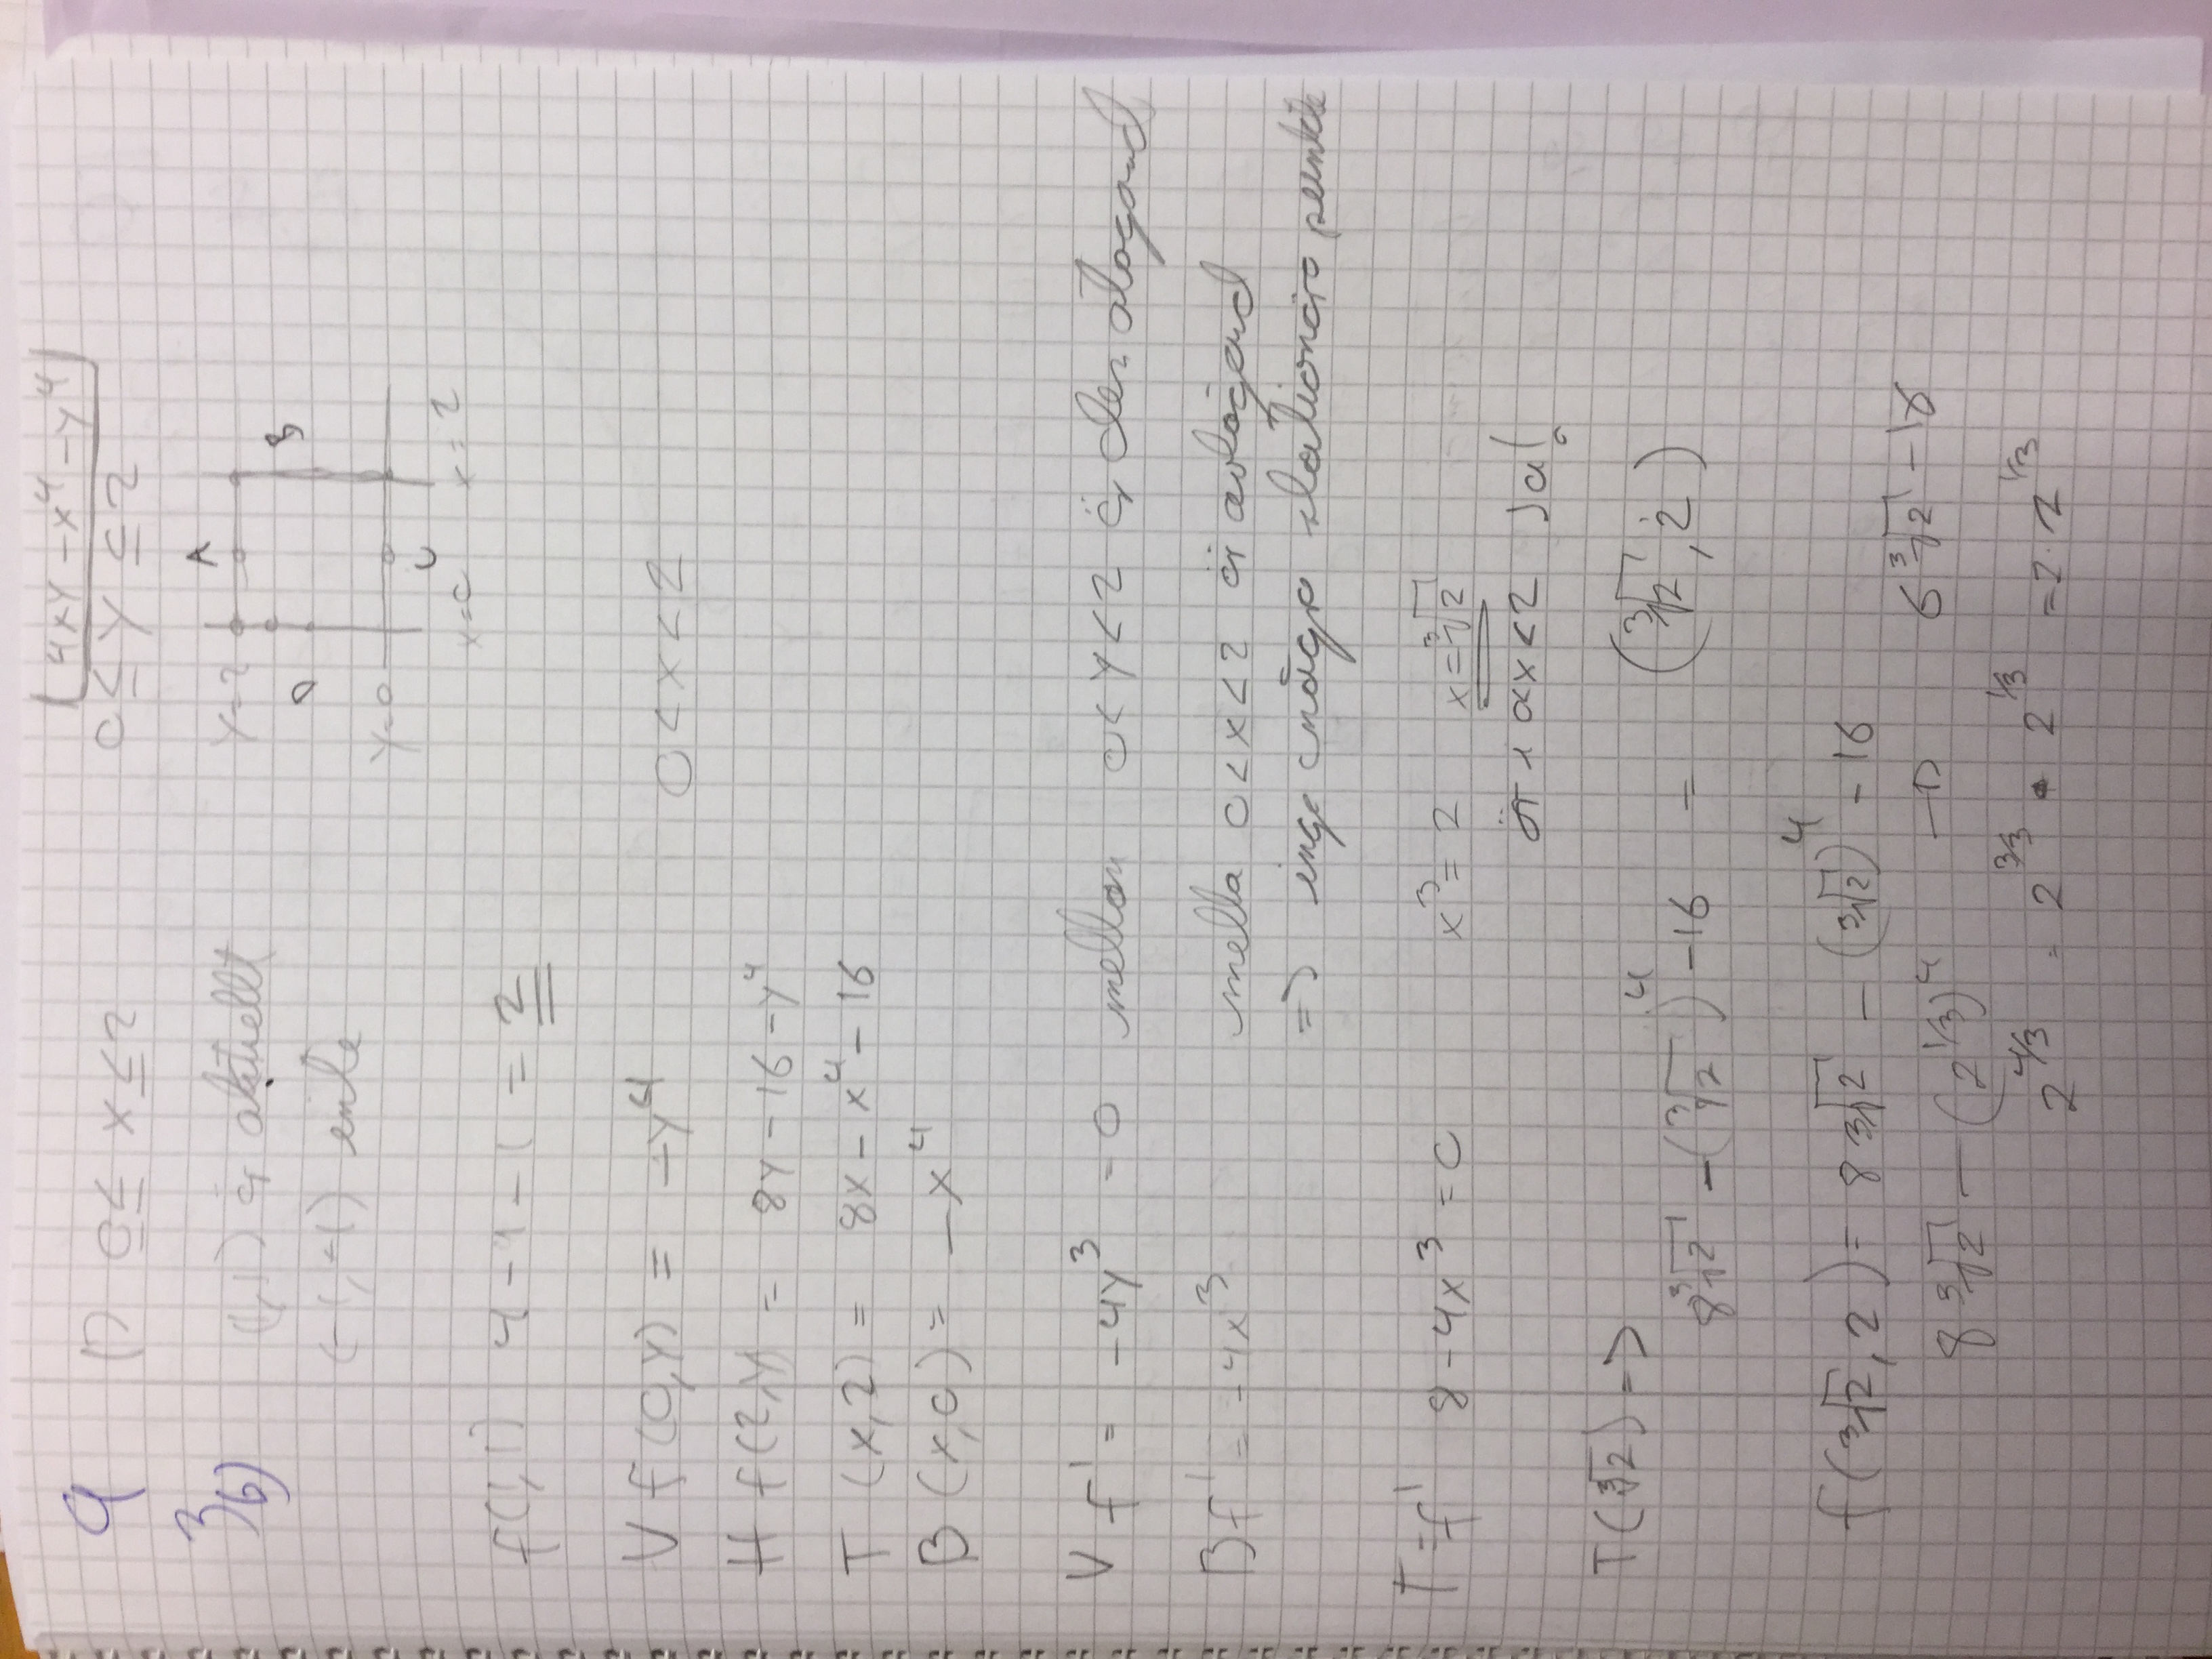 4xy - x⁴ - y⁴
9 1) 0 ≤ x ≤ 2 0 ≤ y ≤ 2
3b) (1,1) är aktuellt
(-1,-1) inte
A
y=2
D B
y=0
C
x=0 x=2
f(1,1) 4 - 1 - 1 = 2
V f(0,y) = -y⁴ 0 < x < 2
H f(2,y) = 8y - 16 - y⁴
T (x,2) = 8x - x⁴ - 16
B (x,0) = -x⁴
V f' = -4y³ = 0 mellan 0 < y < 2 är den
B f' = -4x³ mella 0 < x < 2 är avtagand
=> inga några stationära punkte
T = f' 8 - 4x³ = 0 x³ = 2 x = ³√2
är i 0<x<2 Ja!
T(³√2) =>
8³√2 - (³√2)⁴ - 16 = (³√2, 2)
f(³√2, 2) = 8³√2 - (³√2)⁴ - 16
8³√2 - (2^(1/3))⁴ → 6³√2 - 16
2^(4/3) = 2^(3/3) · 2^(1/3) = 2 · 2^(1/3)